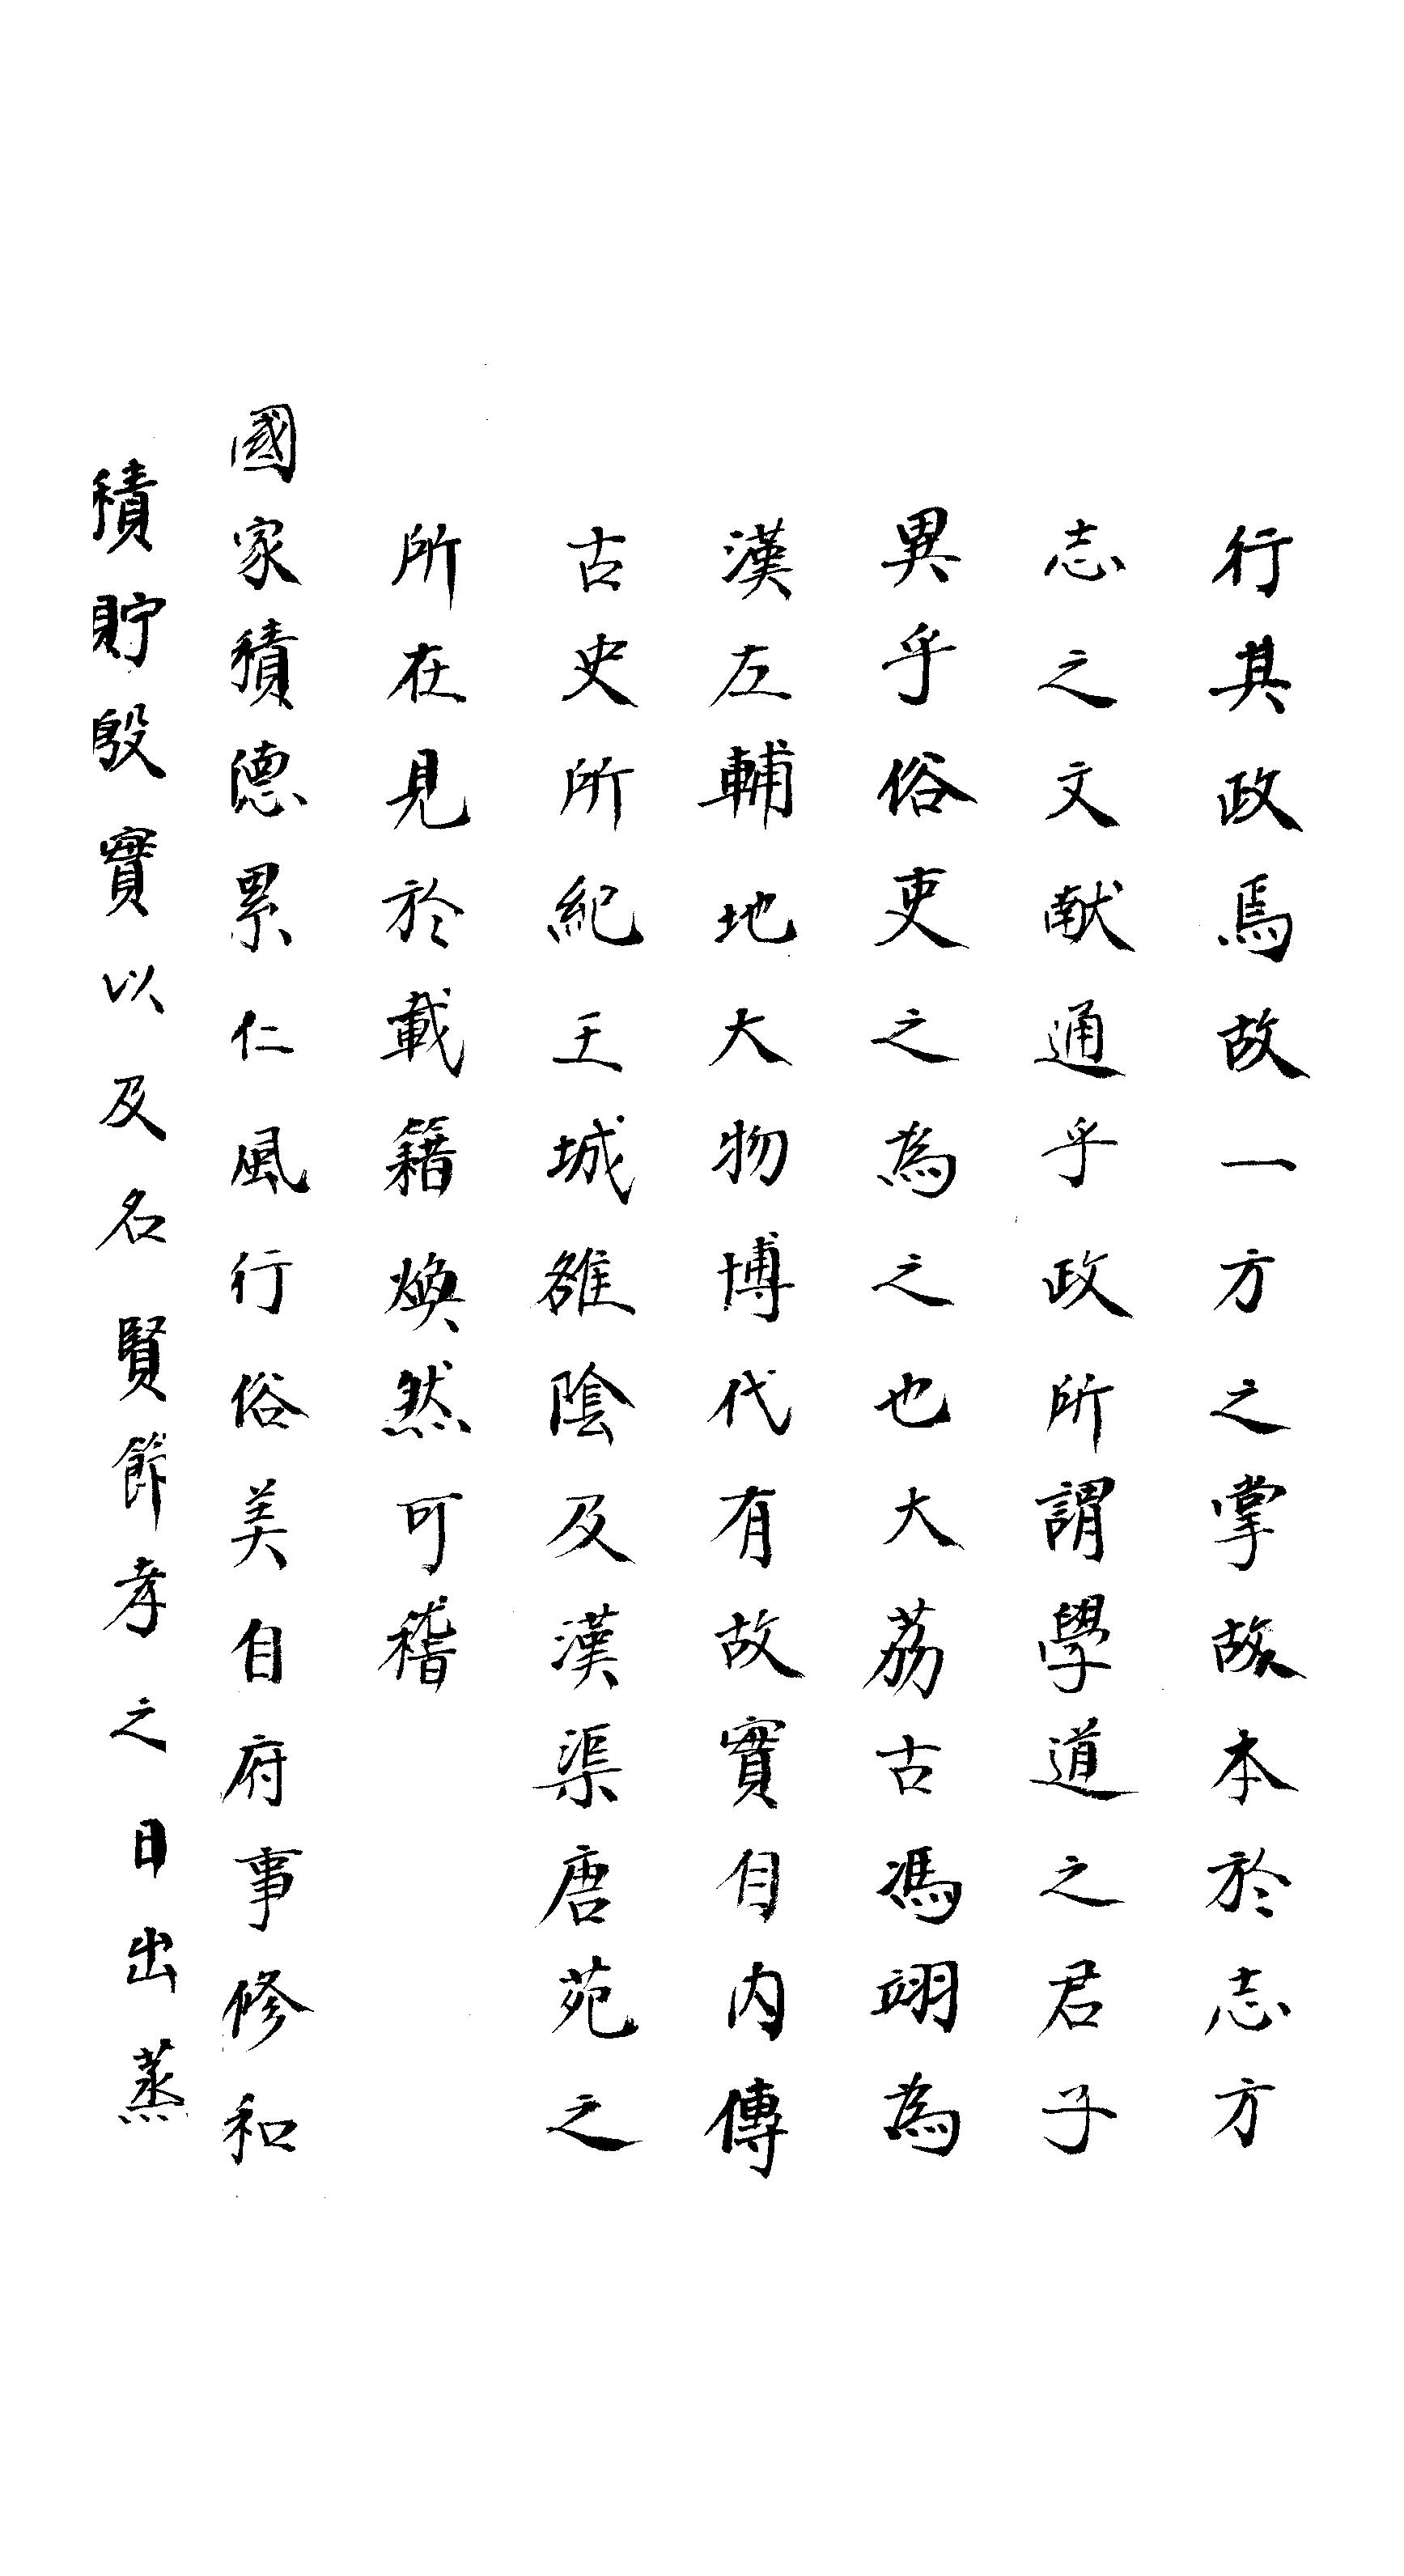 行其政焉故一方之掌故本於志方
志之文献通乎政所謂學道之君子
異乎俗吏之為之也大荔古馮翊為
漢左輔地大物博代有故實自内傳
古史所紀王城雒陰及漢渠唐苑之
所在見於載籍煥然可稽
國家積德累仁風行俗美自府事修和
積貯殷實以及名賢節孝之日出蒸